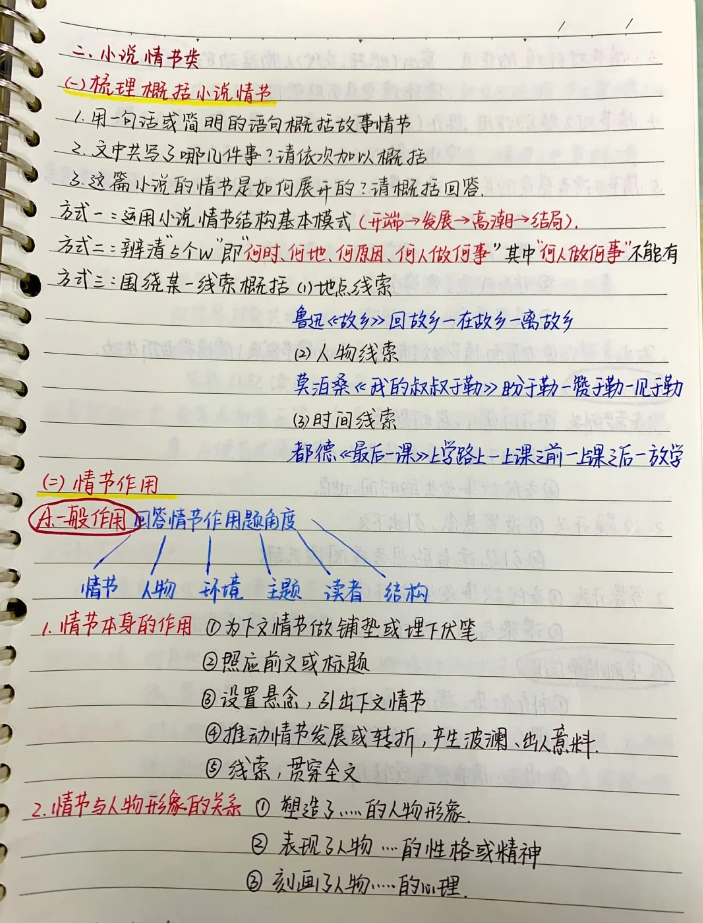 二、小说情节类
(一)梳理概括小说情节
1.用一句话或简明的语句概括故事情节
2.文中共写了哪几件事?请依次加以概括
3.这篇小说的情节是如何展开的?请概括回答.
方式一:运用小说情节结构基本模式(开端→发展→高潮→结局).
方式二:辨清"5个W"即"何时、何地、何原因、何人做何事"其中"何人做何事"不能有
方式三:围绕某一线索概括 (1)地点线索
鲁迅《故乡》回故乡—在故乡—离故乡
(2)人物线索
莫泊桑《我的叔叔于勒》盼于勒—赞于勒—见于勒
(3)时间线索
都德《最后一课》上学路上—上课之前—上课之后—放学
(二)情节作用
A.一般作用 回答情节作用题角度
情节 人物 环境 主题 读者 结构
1.情节本身的作用 ①为下文情节做铺垫或埋下伏笔
②照应前文或标题
③设置悬念,引出下文情节
④推动情节发展或转折,产生波澜、出人意料.
⑤线索,贯穿全文
2.情节与人物形象的关系 ① 塑造了……的人物形象.
② 表现了人物……的性格或精神
③ 刻画了人物……的心理.